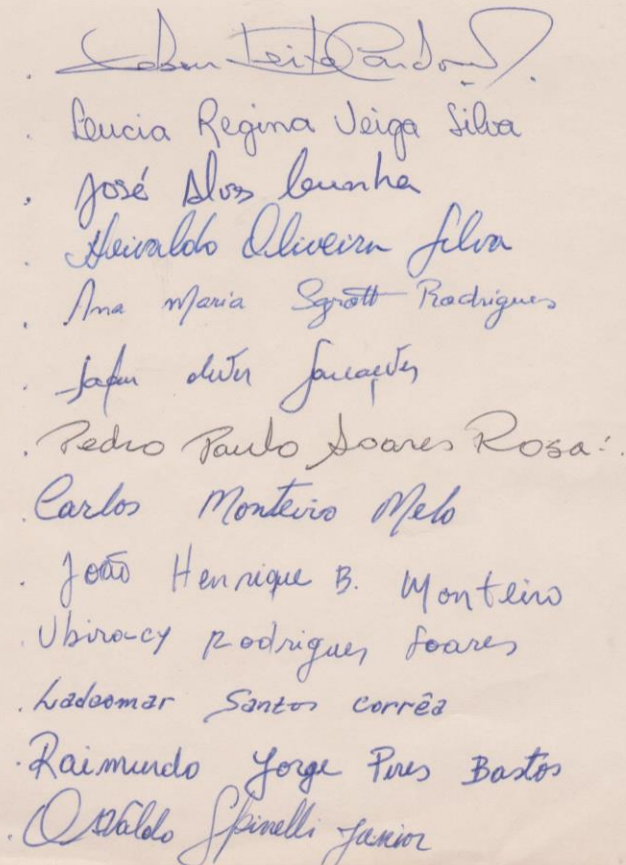 Leite Cardoso
Leucia Regina Veiga Silva
José Alves Cunha
Heivaldo Oliveira Silva
Ana Maria Sgrott Rodrigues
Pedro Paulo Soares Rosa
Carlos Monteiro Melo
João Henrique B. Monteiro
Ubiracy Rodrigues Soares
Ladeomar Santos Corrêa
Raimundo Jorge Pires Bastos
Osvaldo Spinelli Junior